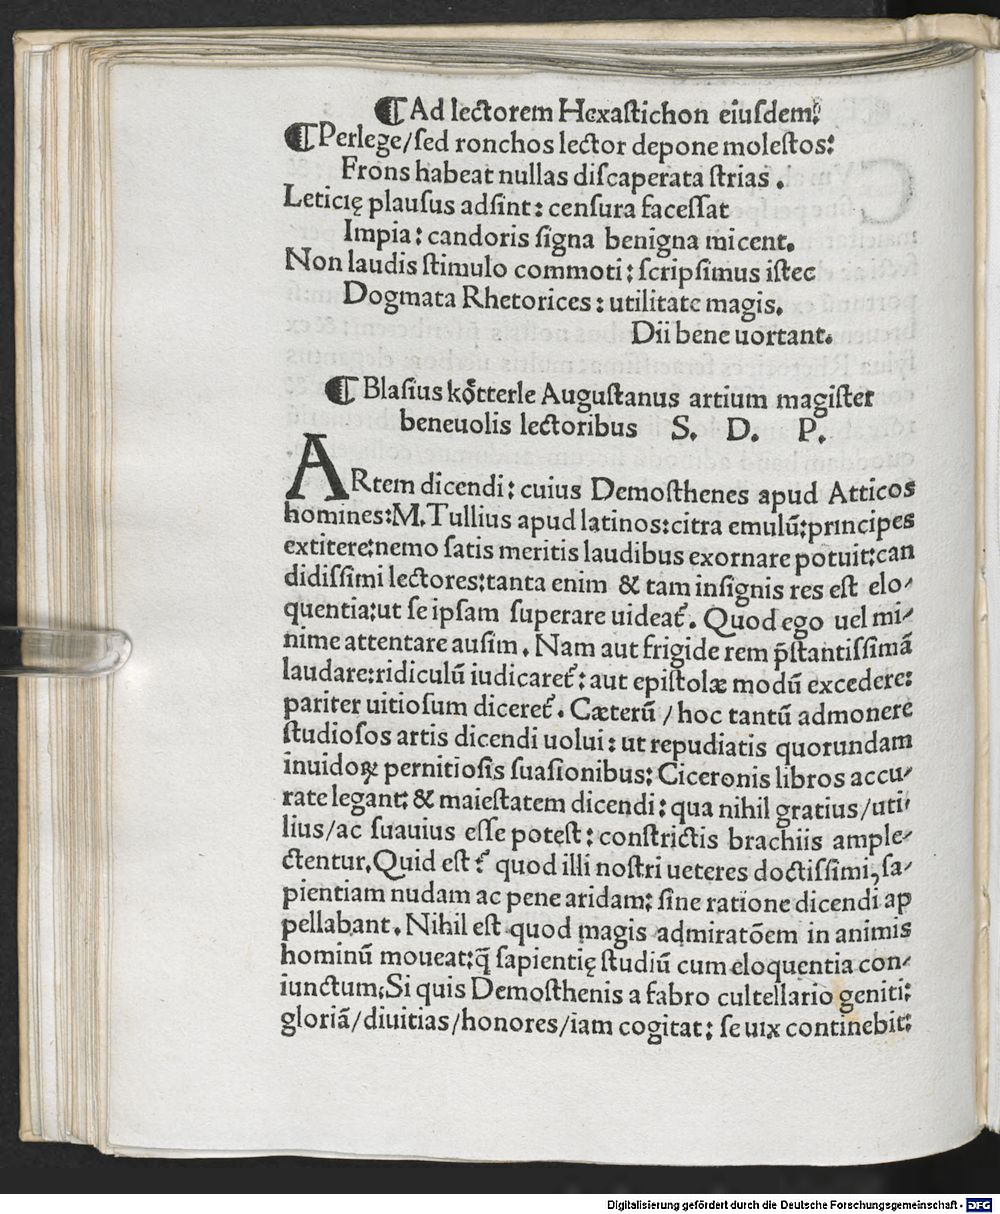 ¶ Ad lectorem Hexaſtichon eiuſdem.
¶ Perlege/ſed ronchos lector depone moleſtos:
Frons habeat nullas diſcaperata ſtrias.
Leticię plauſus adſint: cenſura faceſſat
Impia: candoris ſigna benigna micent.
Non laudis ſtimulo commoti: ſcripſimus iſtec
Dogmata Rhetorices: utilitate magis.
Dii bene uortant.
¶ Blaſius koͤtterle Auguſtanus artium magiſter
beneuolis lectoribus S. D. P.
ARtem dicendi: cuius Demoſthenes apud Atticos
homines: M. Tullius apud latinos: citra emulū: principes
extitere: nemo ſatis meritis laudibus exornare potuit: can
didiſſimi lectores: tanta enim & tam inſignis res eſt elo-
quentia: ut ſe ipſam ſuperare uideat᷑. Quod ego uel mi-
nime attentare auſim. Nam aut frigide rem p̄ſtantiſſimā
laudare: ridiculū iudicaret᷑: aut epiſtolæ modū excedere:
pariter uitioſum diceret᷑. Cæterū / hoc tantū admonere
ſtudioſos artis dicendi uolui: ut repudiatis quorundam
inuidoꝝ pernitioſis ſuaſionibus: Ciceronis libros accu-
rate legant: & maieſtatem dicendi: qua nihil gratius/uti-
lius/ac ſuauius eſſe poteſt: conſtrictis brachiis ample-
ctentur. Quid eſt ? quod illi noſtri ueteres doctiſſimi, ſa-
pientiam nudam ac pene aridam: ſine ratione dicendi ap
pellabant. Nihil eſt quod magis admiratōem in animis
hominū moueat: q̄ ſapientię ſtudiū cum eloquentia con-
iunctum: Si quis Demoſthenis a fabro cultellario geniti:
gloriā/diuitias/honores/iam cogitat: ſe uix continebit:
Digitalisierung gefördert durch die Deutsche Forschungsgemeinschaft - DFG